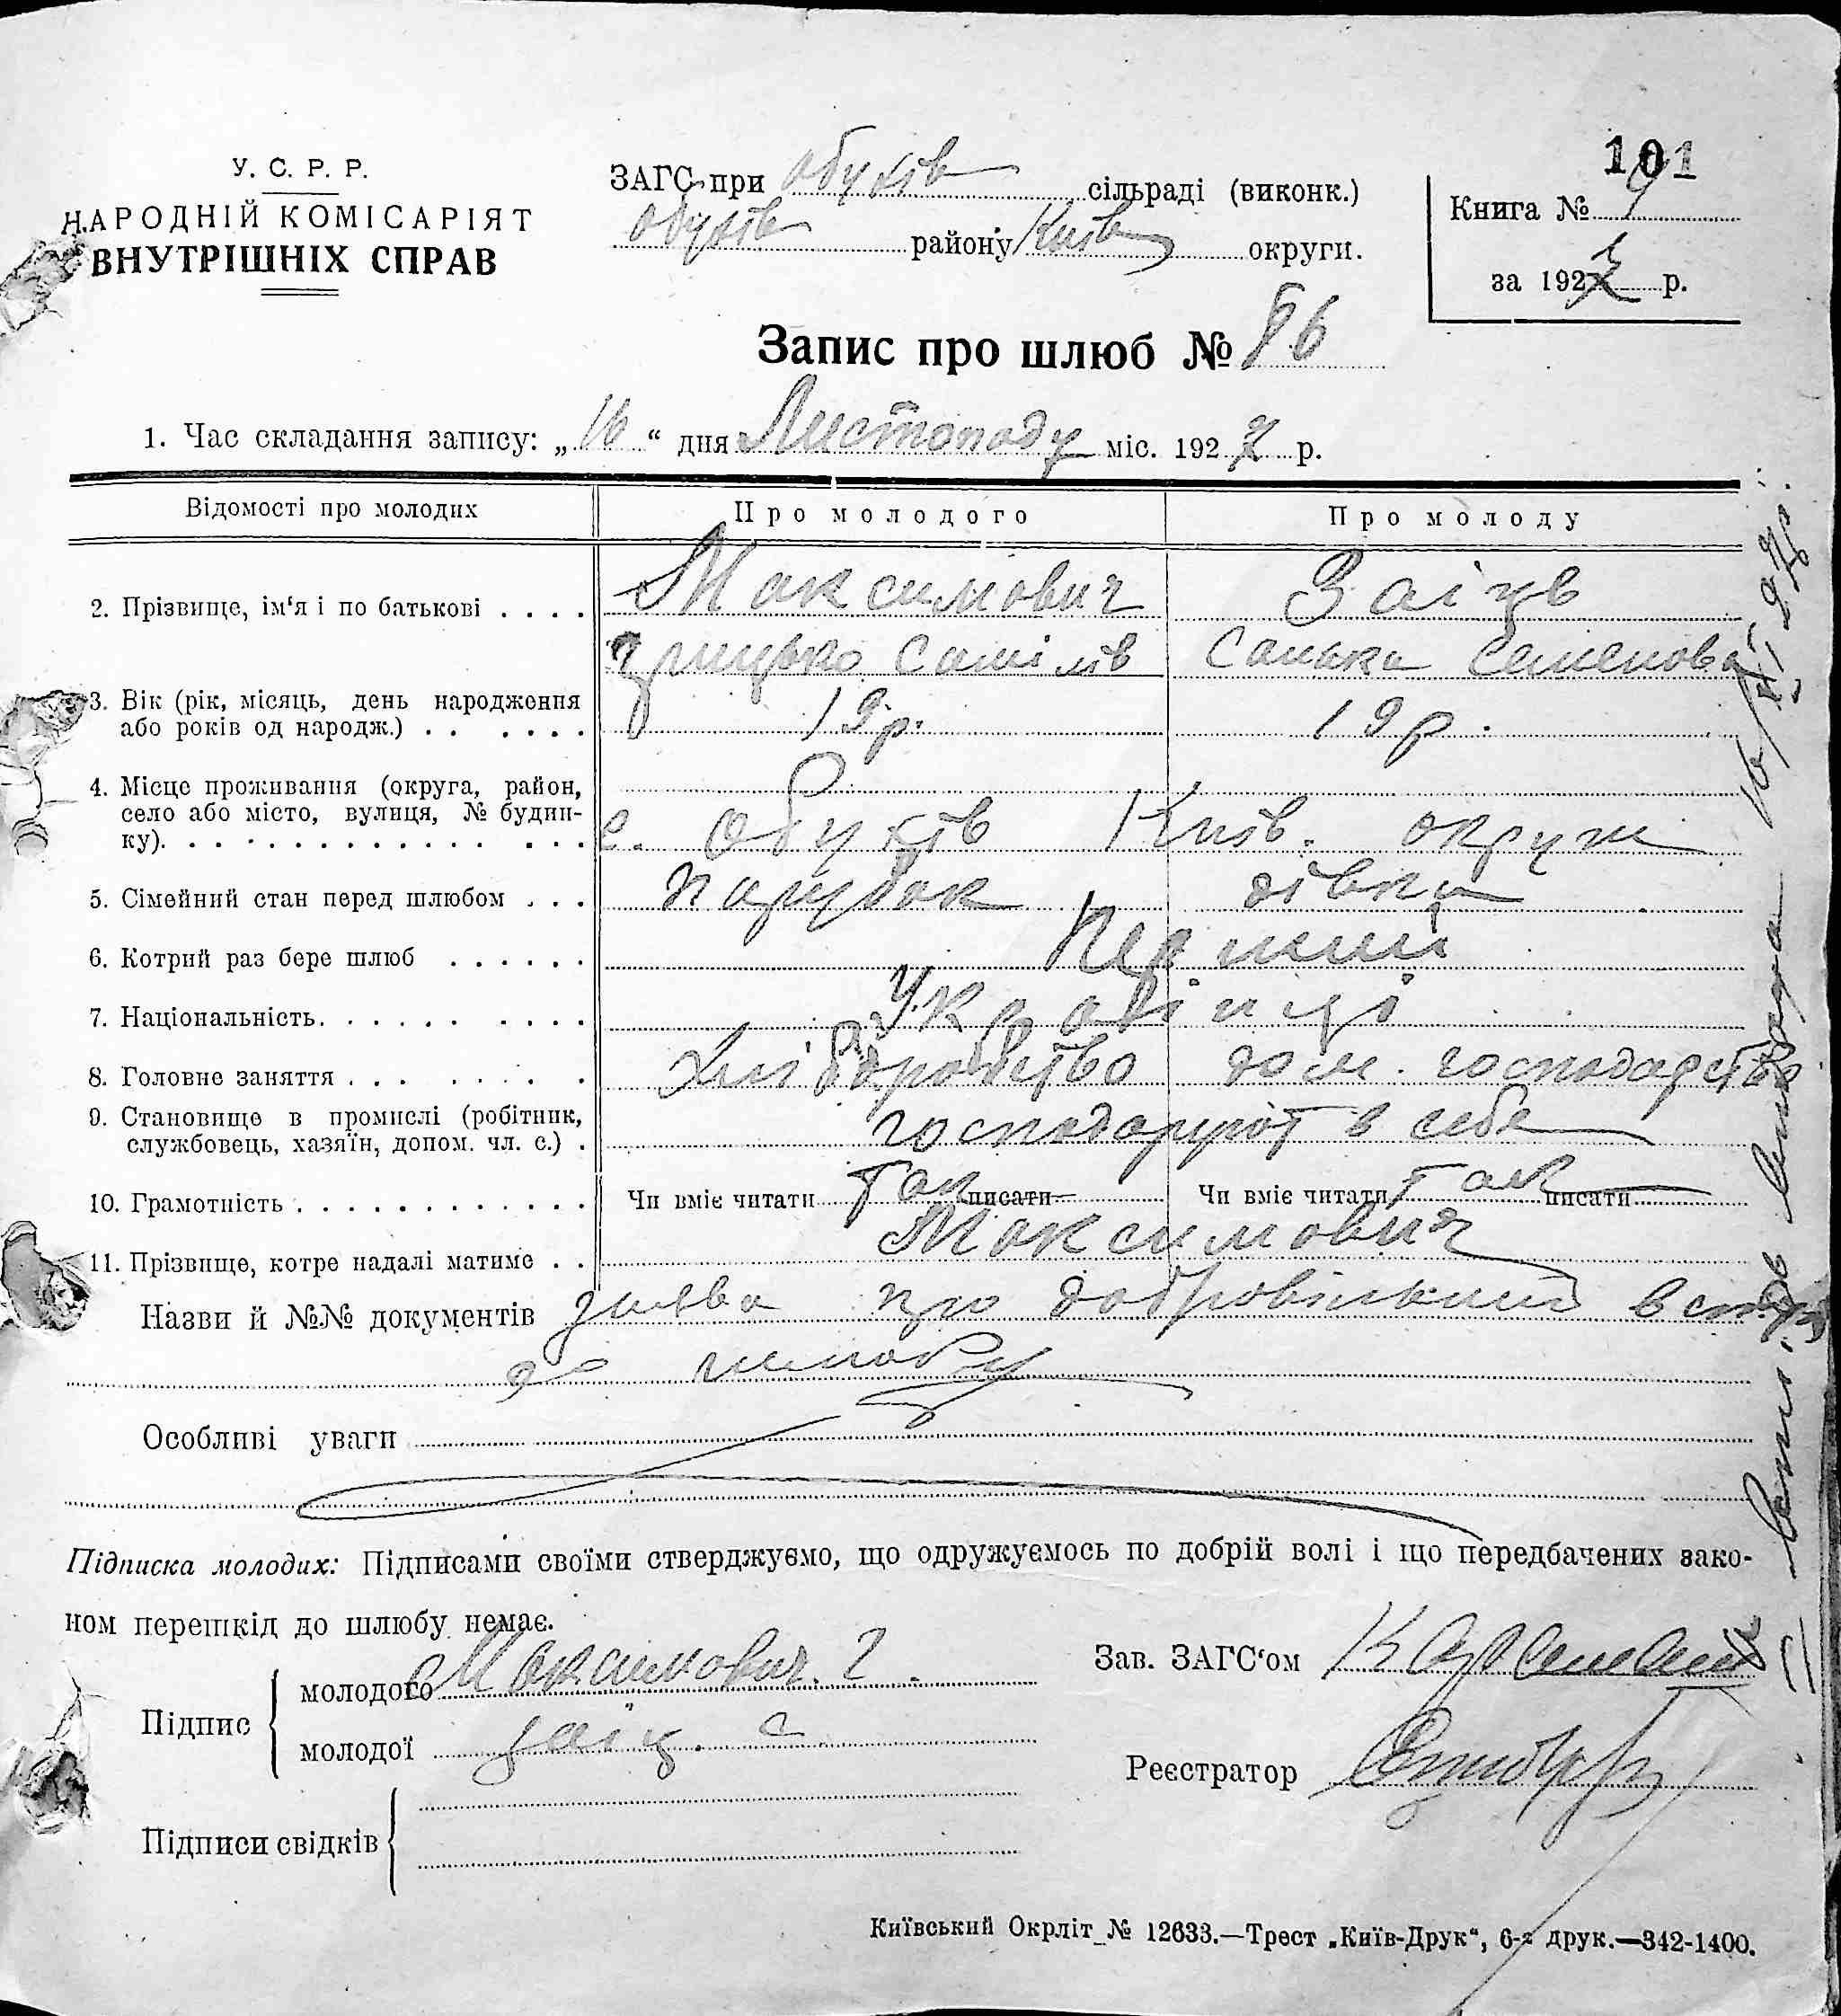 101
У. С. Р. Р.
НАРОДНІЙ КОМІСАРІЯТ
ВНУТРІШНІХ СПРАВ
ЗАГС при Обухів сільраді (виконк.)
Обухів району Київ округи.
Книга №
за 1927 р.
Запис про шлюб № 86
1. Час складання запису: „16“ дня Листопаду міс. 1927 р.
Відомості про молодих Про молодого Про молоду
2. Прізвище, ім‘я і по батькові . . . . Максимович Заіцв
Грицько Самілів Санька Семенова
3. Вік (рік, місяць, день народження
або років од народж.) . . . . . . 19 р. 19 р.
4. Місце проживання (округа, район,
село або місто, вулиця, № будин-
ку). . . . . . . . . . . . . . . . с. Обухів Київ. округи
5. Сімейний стан перед шлюбом . . . парубок дівка
6. Котрий раз бере шлюб . . . . . . Перший
7. Національність. . . . . . . . . . Українці
8. Головне заняття . . . . . . . . Хліборобство дом. господарство
9. Становище в промислі (робітник,
службовець, хазяїн, допом. чл. с.) . господарують в себе
10. Грамотність . . . . . . . . . . . . Чи вміє читати так писати Чи вміє читати так писати
11. Прізвище, котре надалі матиме . . Максимович
Назви й №№ документів заява про добровільний вступ
до шлюбу
Особливі уваги
Підписка молодих: Підписами своїми стверджуємо, що одружуємось по добрій волі і що передбачених зако-
ном перешкід до шлюбу немає.
Підпис
молодого Максимович. Г.
молодої Заіц. С.
Зав. ЗАГС‘ом
Реєстратор
Підписи свідків
Київський Окрліт № 12633.—Трест „Київ-Друк“, 6-а друк.—342-1400.